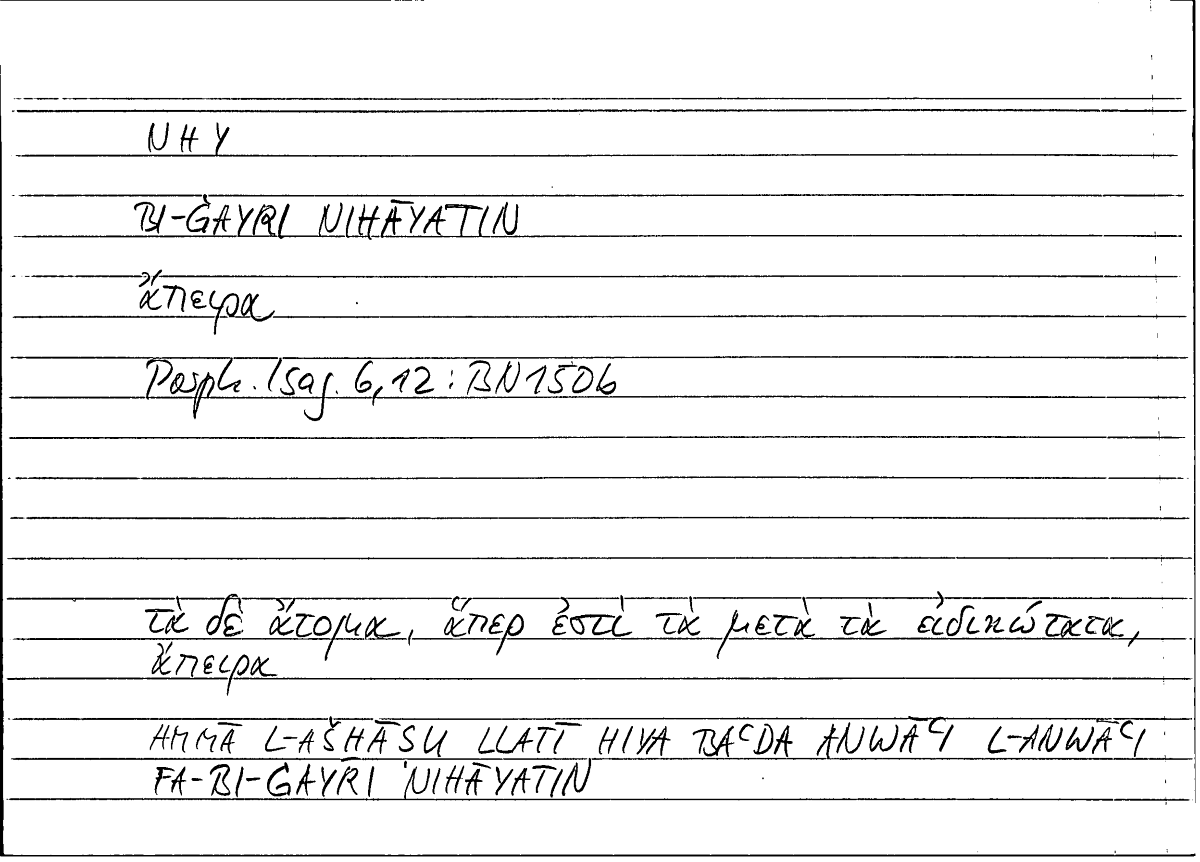 NHY
BI-ĠAYRI NIHĀYATIN
ἄπειρα
Porph. Isag. 6,12 : BN 150b
τὰ δὲ ἄτομα, ἅπερ ἐστὶ τὰ μετὰ τὰ εἰδικώτατα,
ἄπειρα
AMMĀ L-AŠHĀSU LLATĪ HIYA BAʿDA ANWĀʿI L-ANWĀʿI
FA-BI-ĠAYRI NIHĀYATIN